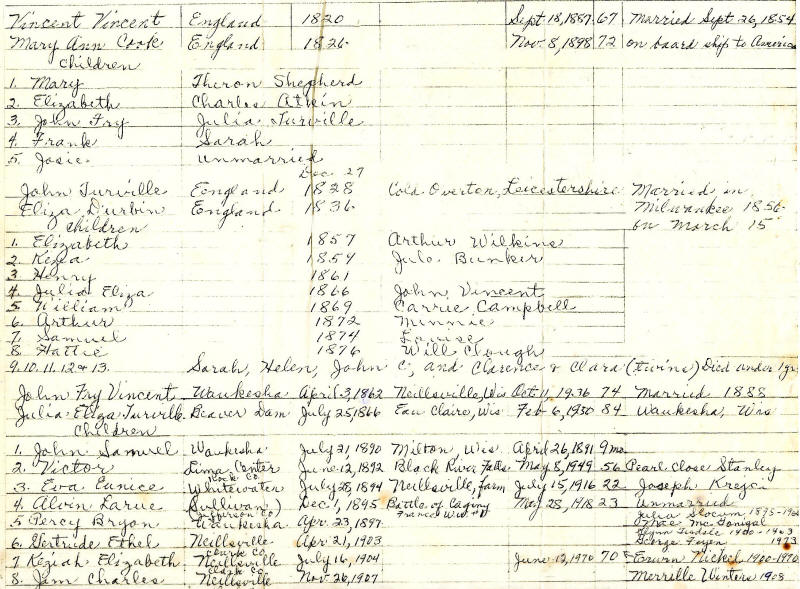 Vincent Vincent England 1820 Sept 18, 1887 67 Married Sept 26, 1854
Mary Ann Cook England 1826 Nov. 8, 1898 72 on board ship to America
Children
1. Mary Theron Shepherd
2. Elizabeth Charles Atkin
3. John Fry Julia Turville
4. Frank Sarah
5. Josie unmarried
Dec 27
John Turville England 1828 Cold Overton, Leicestershire Married in
Eliza Durbin England 1836 Milwaukee 1856
Children on March 15
1. Elizabeth 1857 Arthur Wilkins
2 Kezia 1859 Jule Bunker
3 Henry 1861
4. Julia Eliza 1866 John Vincent
5 William 1869 Carrie Campbell
6. Arthur 1872 Minnie
7. Samuel 1874 Louise
8. Hattie 1876 Will Clough
9. 10. 11. 12 & 13. Sarah, Helen, John C, and Clarence & Clara (twins) Died under 1 yr
John Fry Vincent Waukesha April 3, 1862 Neillsville, Wis Oct 11, 1936 74 Married 1888
Julia Eliza Turville Beaver Dam July 25, 1866 Eau Claire, Wis Feb 6, 1950 84 Waukesha, Wis
Children
1. John Samuel Waukesha July 21, 1890 Milton, Wis April 26, 1891 9 mo
2. Victor Lima Center June 12, 1892 Black River Falls May 8, 1949 56 Pearl Close Stanley
Rock Co
3. Eva Eunice Whitewater July 28, 1894 Neillsville, farm July 15, 1916 22 Joseph Krejci
4. Alvin Larue Sullivan Dec 1, 1895 Battle of Cagny May 28, 1918 23 unmarried
Jefferson Co France WW
5 Percy Bryon Waukesha Apr. 23, 1897 Julia Slocum
6. Gertrude Ethel Neillsville Apr 21, 1903
Clark Co George Feyen 1973
7 Keziah Elizabeth Neillsville July 16, 1904 June 12, 1970 70 Erwin Nickel 1900-1970
Clark Co
8. Jim Charles Neillsville Nov 26, 1907 Merrille Winters 1908